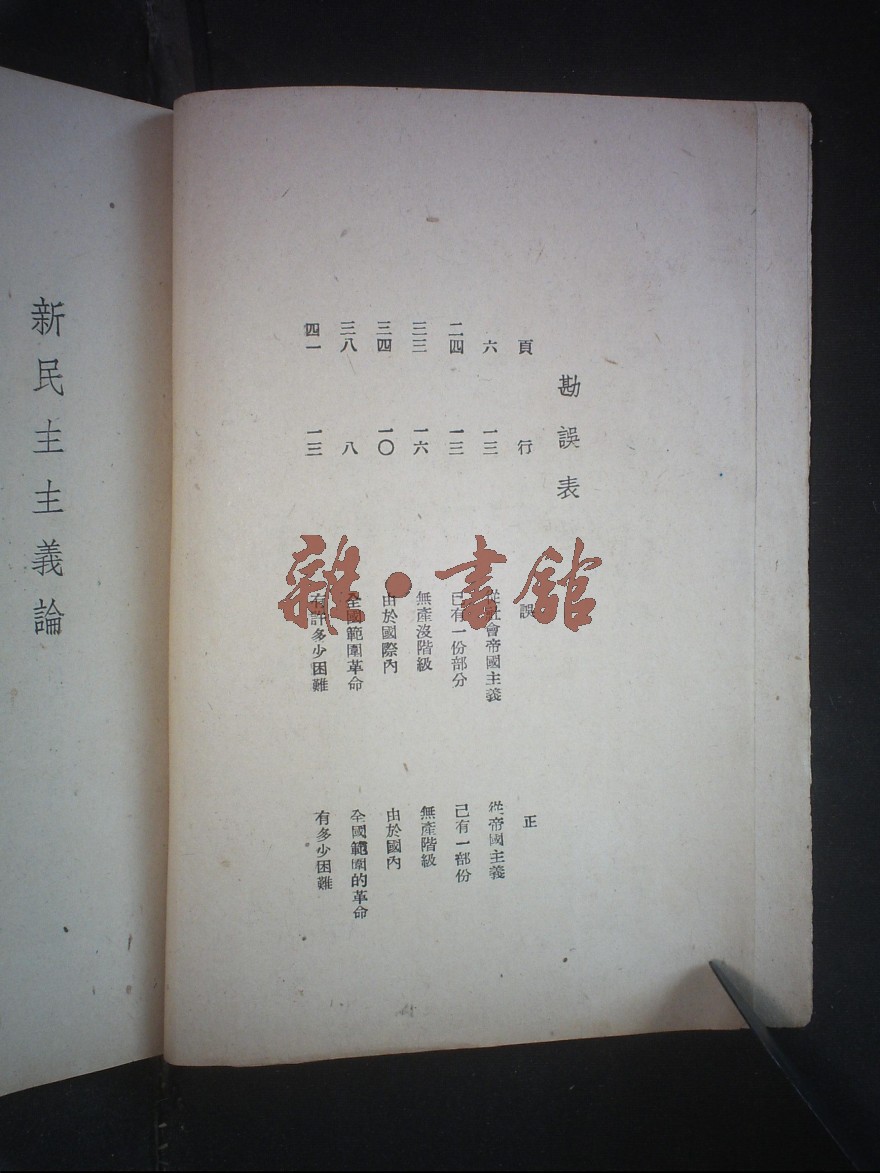 勘誤表
頁 行 誤 正
六 一三 從社會帝國主義 從帝國主義
二四 一三 已有一份部分 己有一部份
三三 一六 無產沒階級 無產階級
三四 一〇 由於國際內 由於國內
三八 八 全國範圍革命 全國範圍的革命
四一 一三 有許多少困難 有多少困難
新民主主義論
雜·書館